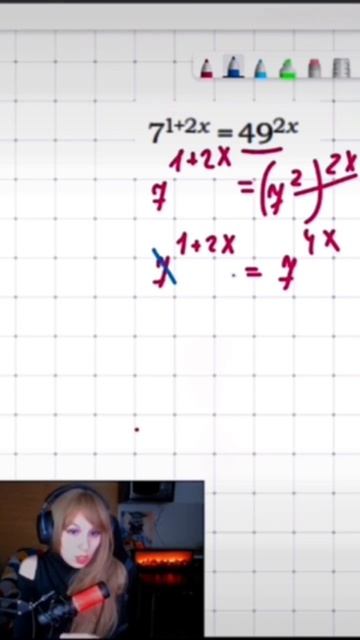 7^{1+2x} = 49^{2x}
7^{1+2x} = (7^{2})^{2x}
7^{1+2x} = 7^{4x}